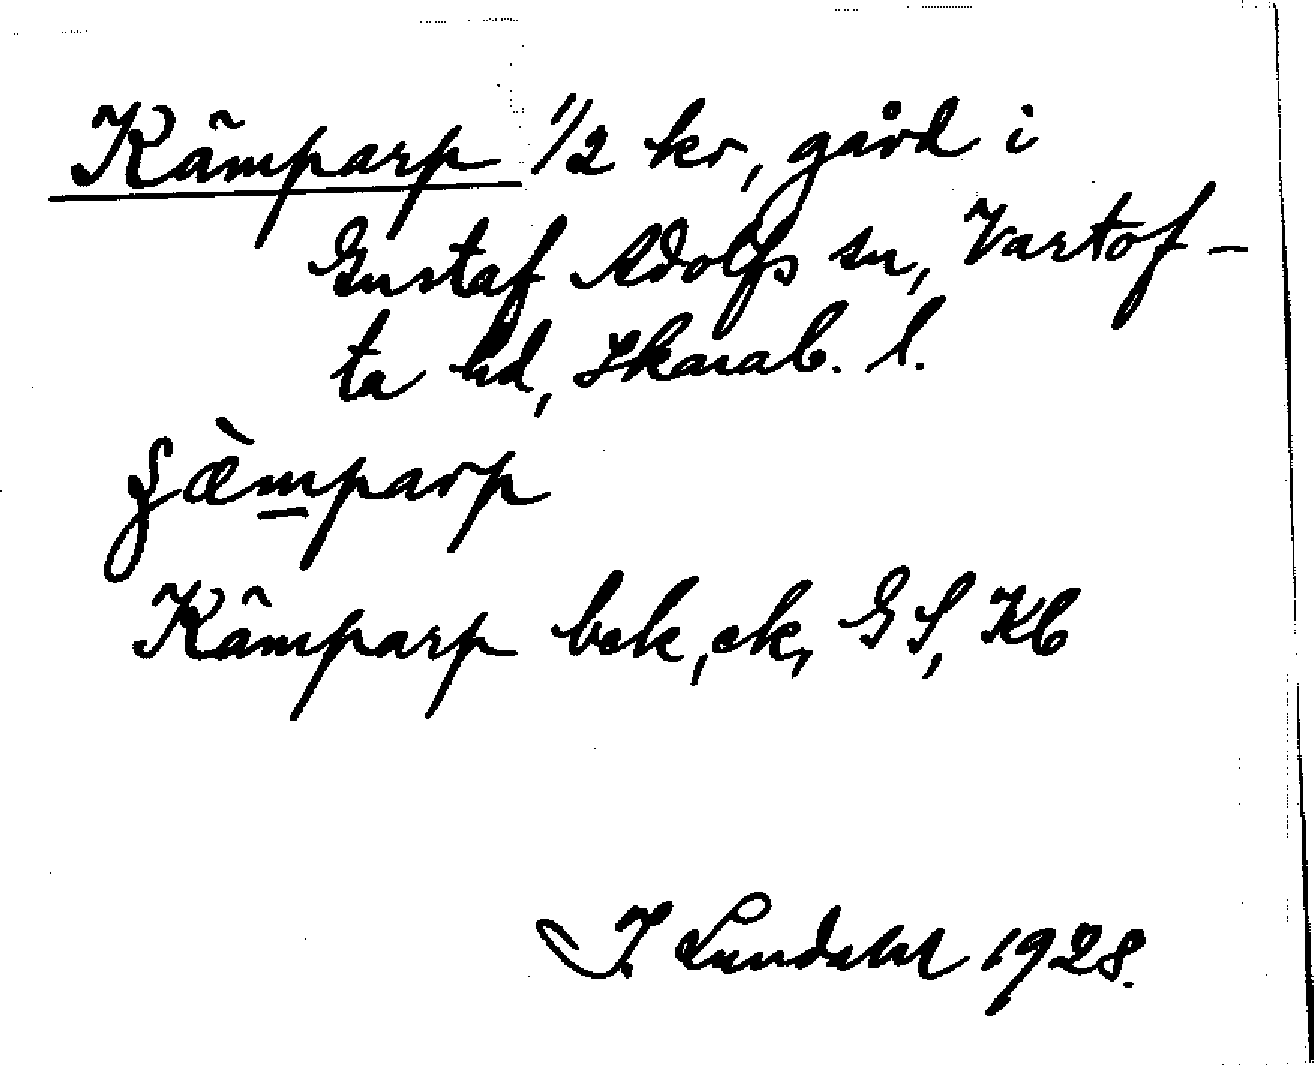 Kämparp 1/2 kr, gård i
Gustaf Adolfs sn, Vartof-
ta hd, Skarab. l.
ʃæ̀mparp
Kämparp bek, ek, GS, Kb
I. Lundahl 1928.